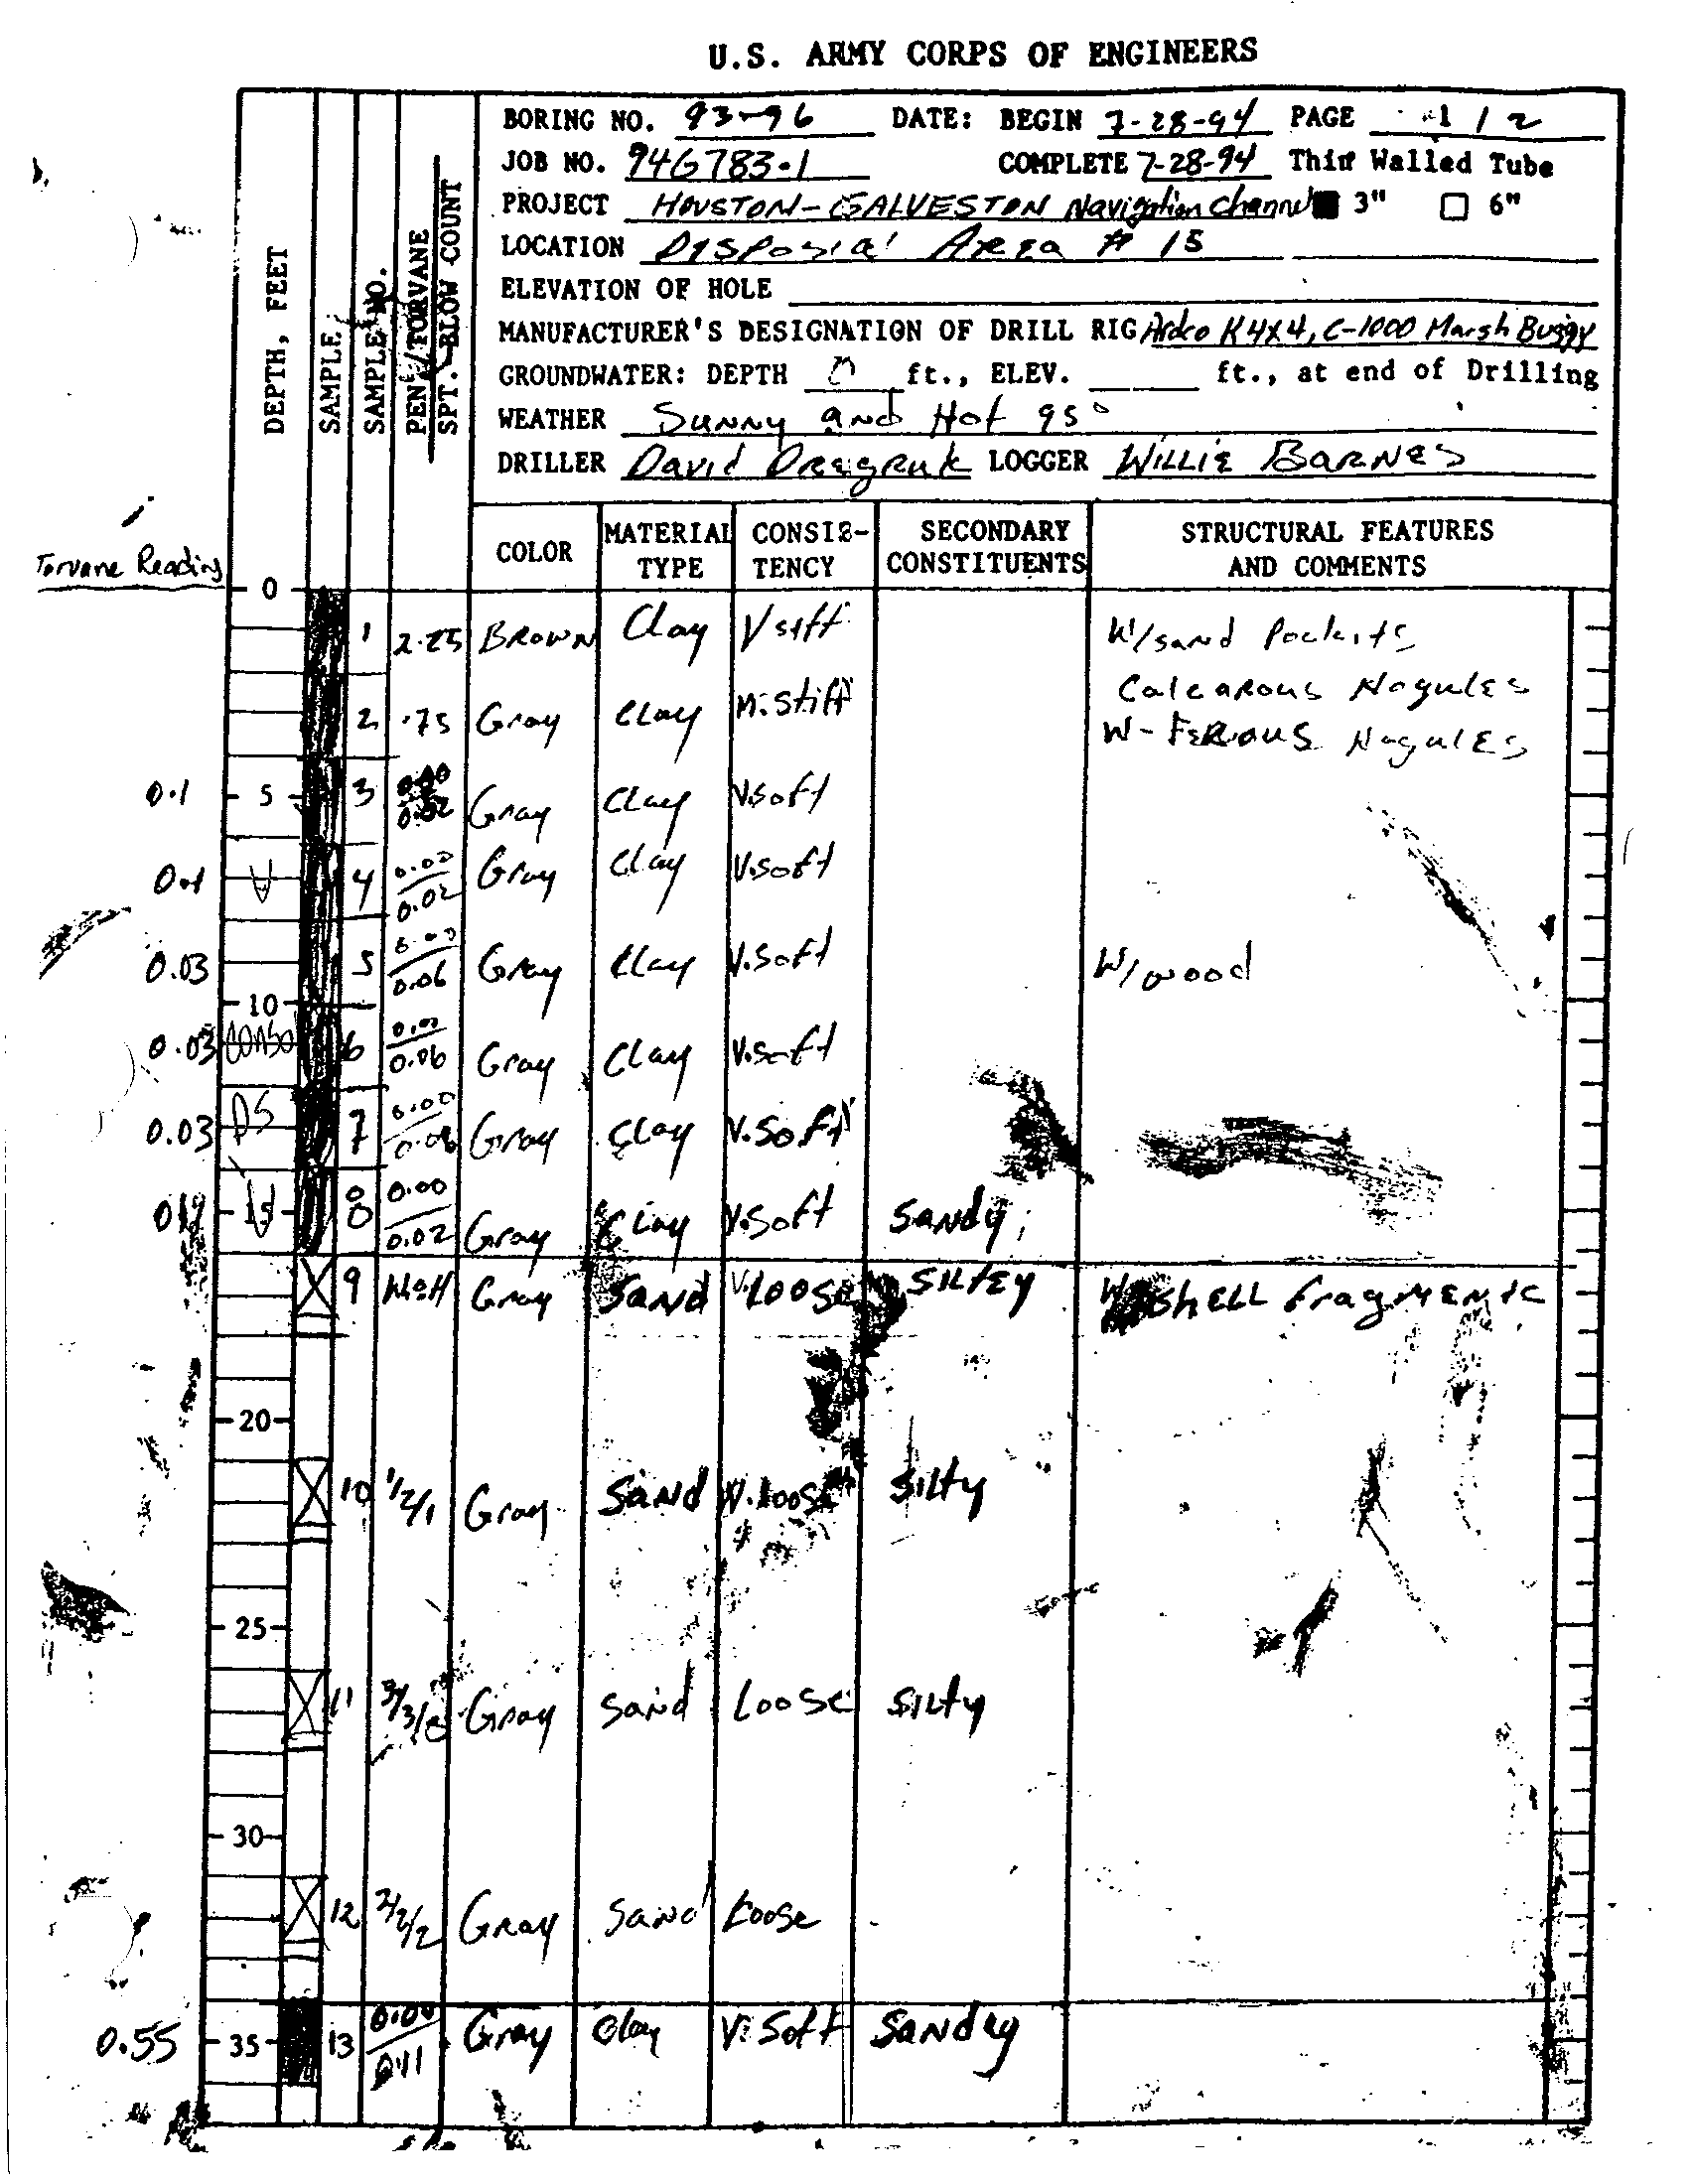 U.S. ARMY CORPS OF ENGINEERS
BORING NO. 93-96 DATE: BEGIN 7-28-94 PAGE 1 / 2
JOB NO. 94G783.1 COMPLETE 7-28-94 Thin Walled Tube
PROJECT HOUSTON-GALVESTON Navigation Channel 3" 6"
LOCATION Area # 15
ELEVATION OF HOLE
MANUFACTURER'S DESIGNATION OF DRILL RIG Ardco K 4x4, C-1000 Marsh Buggy
GROUNDWATER: DEPTH 0 ft., ELEV. ft., at end of Drilling
WEATHER Sunny and Hot 95°
DRILLER David LOGGER WILLIE BARNES
DEPTH, FEET
SAMPLE
SAMPLE NO.
PEN/TORVANE
SPT. BLOW COUNT
COLOR MATERIAL TYPE CONSIS-TENCY SECONDARY CONSTITUENTS STRUCTURAL FEATURES AND COMMENTS
Torvane Reading
0
1 2.25 BROWN Clay V stff W/sand Pockits
Calcarous Nogules
2 .75 Gray Clay M. Stiff W- FERROUS Nogules
0.1 5 3 0.00 0.02 Gray Clay V.soft
0.1 4 0.00 0.02 Gray Clay V.soft
0.03 5 0.00 0.06 Gray Clay V.Soft W/wood
10
0.03 CONSO 6 0.00 0.06 Gray Clay V.soft
0.03 DS 7 0.00 0.06 Gray Clay V.Soft
15 8 0.00 0.02 Gray Clay V.Soft SANDY
9 WOH Gray SAND V.LOOSE SILTEY W SHELL fragments
20
10 1/2/1 Gray SAND V.Loose SILTY
25
11 Gray Sand Loose SILTY
30
12 2/2/2 Gray Sand Loose
0.55 35 13 0.00 0.11 Gray Clay V. Soft Sandy